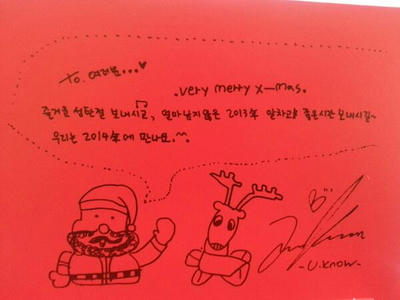 To. 여러분...♥
.very merry x-mas.
즐거운 성탄절 보내시고, 얼마남지않은 2013年 알차고 좋은시간 보내시길~
우리는 2014年에 만나요.^^.
-U.know-